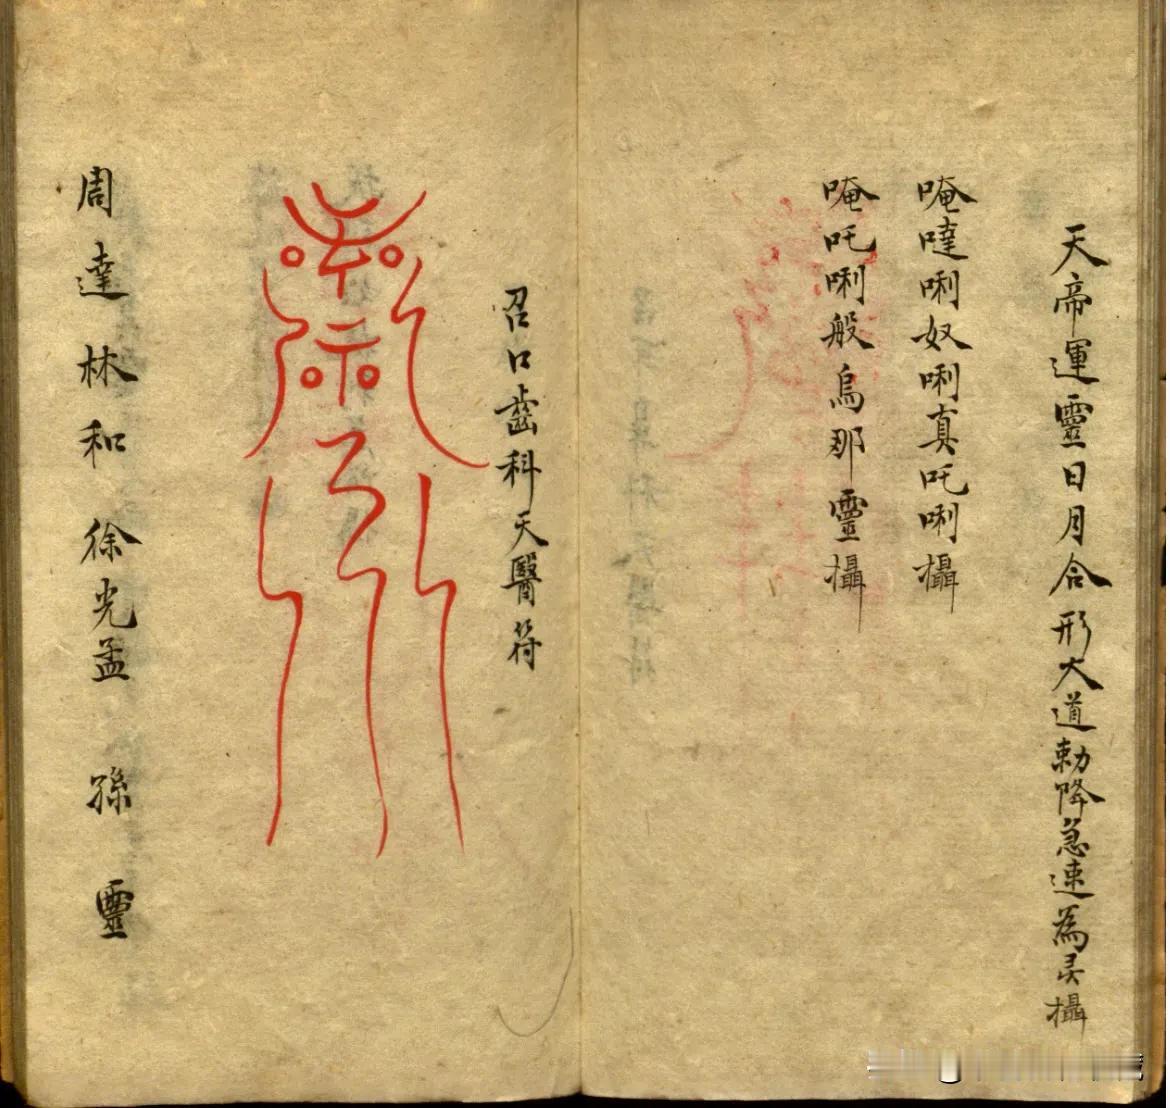 天帝運靈日月合形大道勅降急速為灵攝
唵噠唎奴唎真吒唎攝
唵吒唎般烏那靈攝
召口齒科天醫符
周達林和徐光孟孫靈